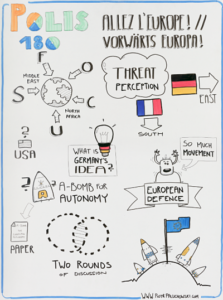 POLIS
180
ALLEZ L'EUROPE! //
VORWÄRTS EUROPA!
F
O
C
U
S
MIDDLE
EAST
NORTH
AFRICA
THREAT
PERCEPTION
EAST
SOUTH
?
USA
WHAT IS
GERMANY'S
IDEA?
SO MUCH
MOVEMENT
?
A-BOMB FOR
AUTONOMY
EUROPEAN
DEFENCE
PAPER
TWO ROUNDS
OF DISCUSSION